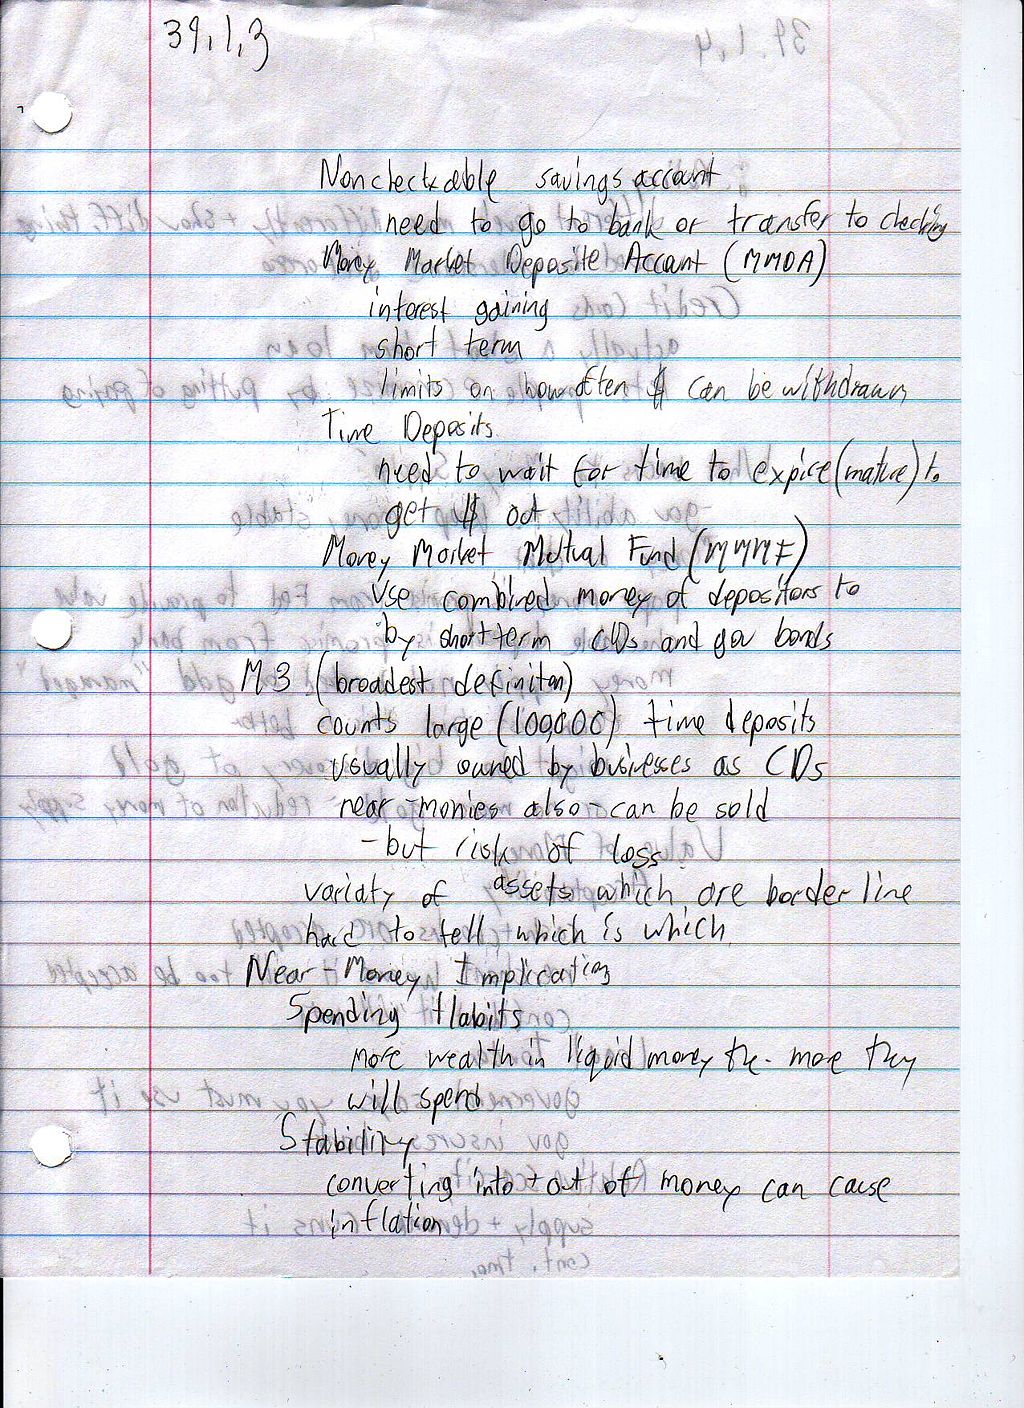 39.1.3
Noncheckable savings account
need to go to bank or transfer to checking
Money Market Deposite Account (MMDA)
interest gaining
short term
limits on how often $ can be withdrawn
Time Deposits
need to wait for time to expire (mature) to
get $ out
Money Market Mutual Fund (MMMF)
Use combined money of depositors to
by short term CDs and gov bonds
M3 (broadest definiton)
counts large (100,000) time deposits
usually owned by businesses as CDs
near-monies also - can be sold
- but risk of loss
variaty of assets which are border line
hard to tell which is which
Near-Money Implicating
Spending Habits
more wealth in liquid money the more they
will spend
Stability
converting into + out of money can cause
inflation